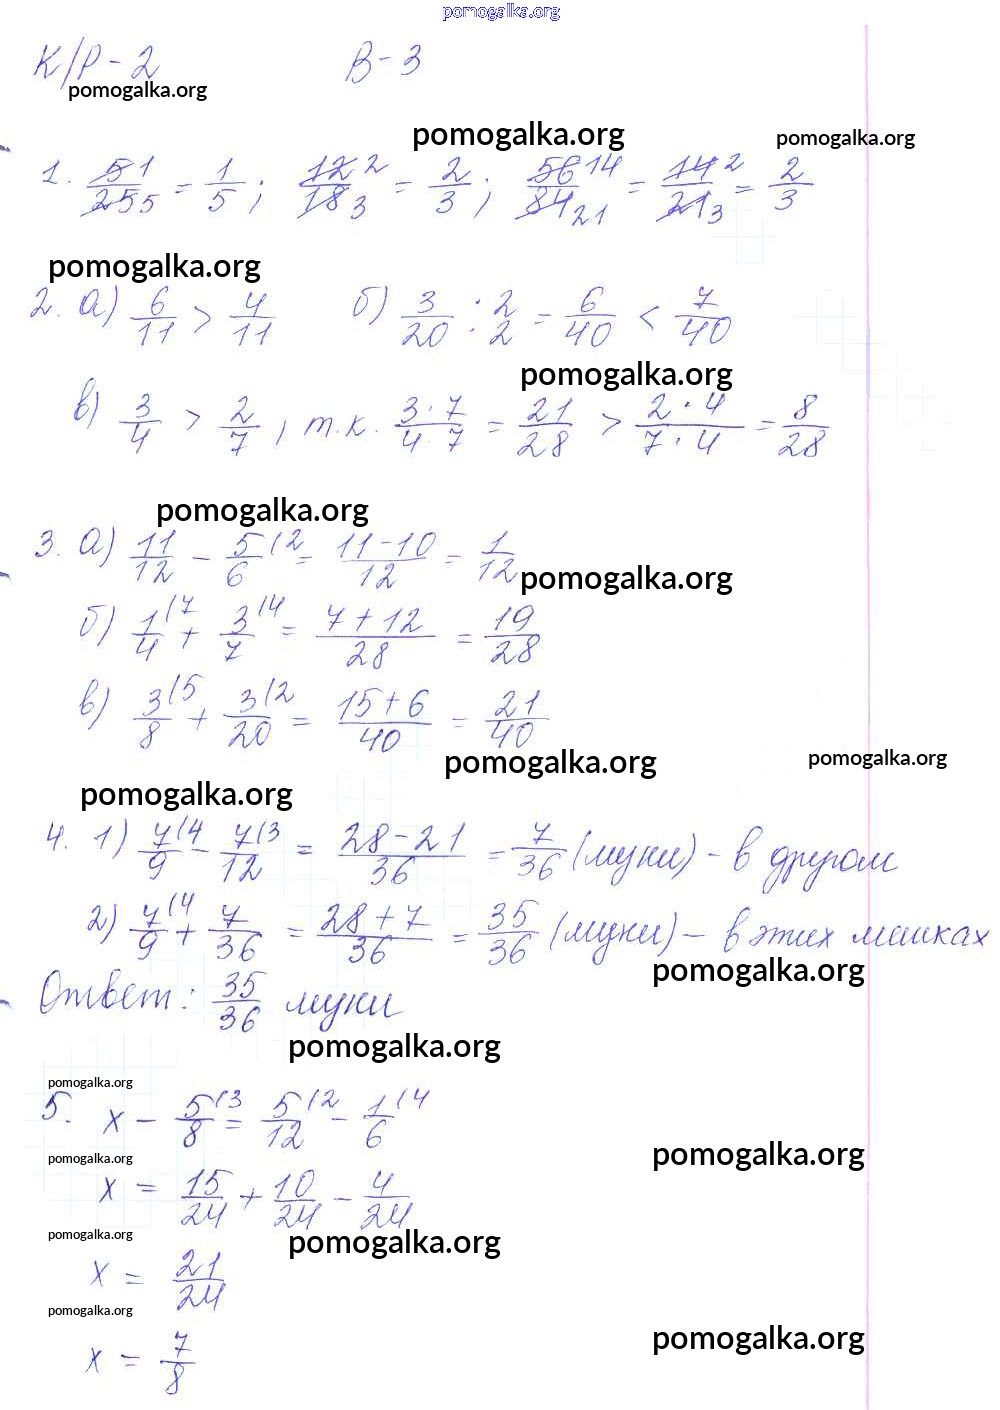 pomogalka.org
К/Р - 2 В - 3
pomogalka.org
pomogalka.org
pomogalka.org
1. 5 1/25 5 = 1/5 ; 12 2/18 3 = 2/3 ; 56 14/84 21 = 14 2/21 3 = 2/3
pomogalka.org
2. а) 6/11 > 4/11 б) 3/20 · 2/2 = 6/40 < 7/40
pomogalka.org
в) 3/4 > 2/7 , т.к. 3·7/4·7 = 21/28 > 2·4/7·4 = 8/28
pomogalka.org
3. а) 11/12 - 5/6 (2 = 11-10/12 = 1/12
pomogalka.org
б) 1/4 (7 + 3/7 (4 = 7+12/28 = 19/28
в) 3/8 (5 + 3/20 (2 = 15+6/40 = 21/40
pomogalka.org pomogalka.org
pomogalka.org
4. 1) 7/9 (4 - 7/12 (3 = 28-21/36 = 7/36 (муки) - в другом
2) 7/9 (4 + 7/36 = 28+7/36 = 35/36 (муки) - в этих мешках
pomogalka.org
Ответ: 35/36 муки
pomogalka.org
pomogalka.org
5. x - 5/8 (3 = 5/12 (2 - 1/6 (4
pomogalka.org pomogalka.org
x = 15/24 + 10/24 - 4/24
pomogalka.org pomogalka.org
x = 21/24
pomogalka.org pomogalka.org
x = 7/8